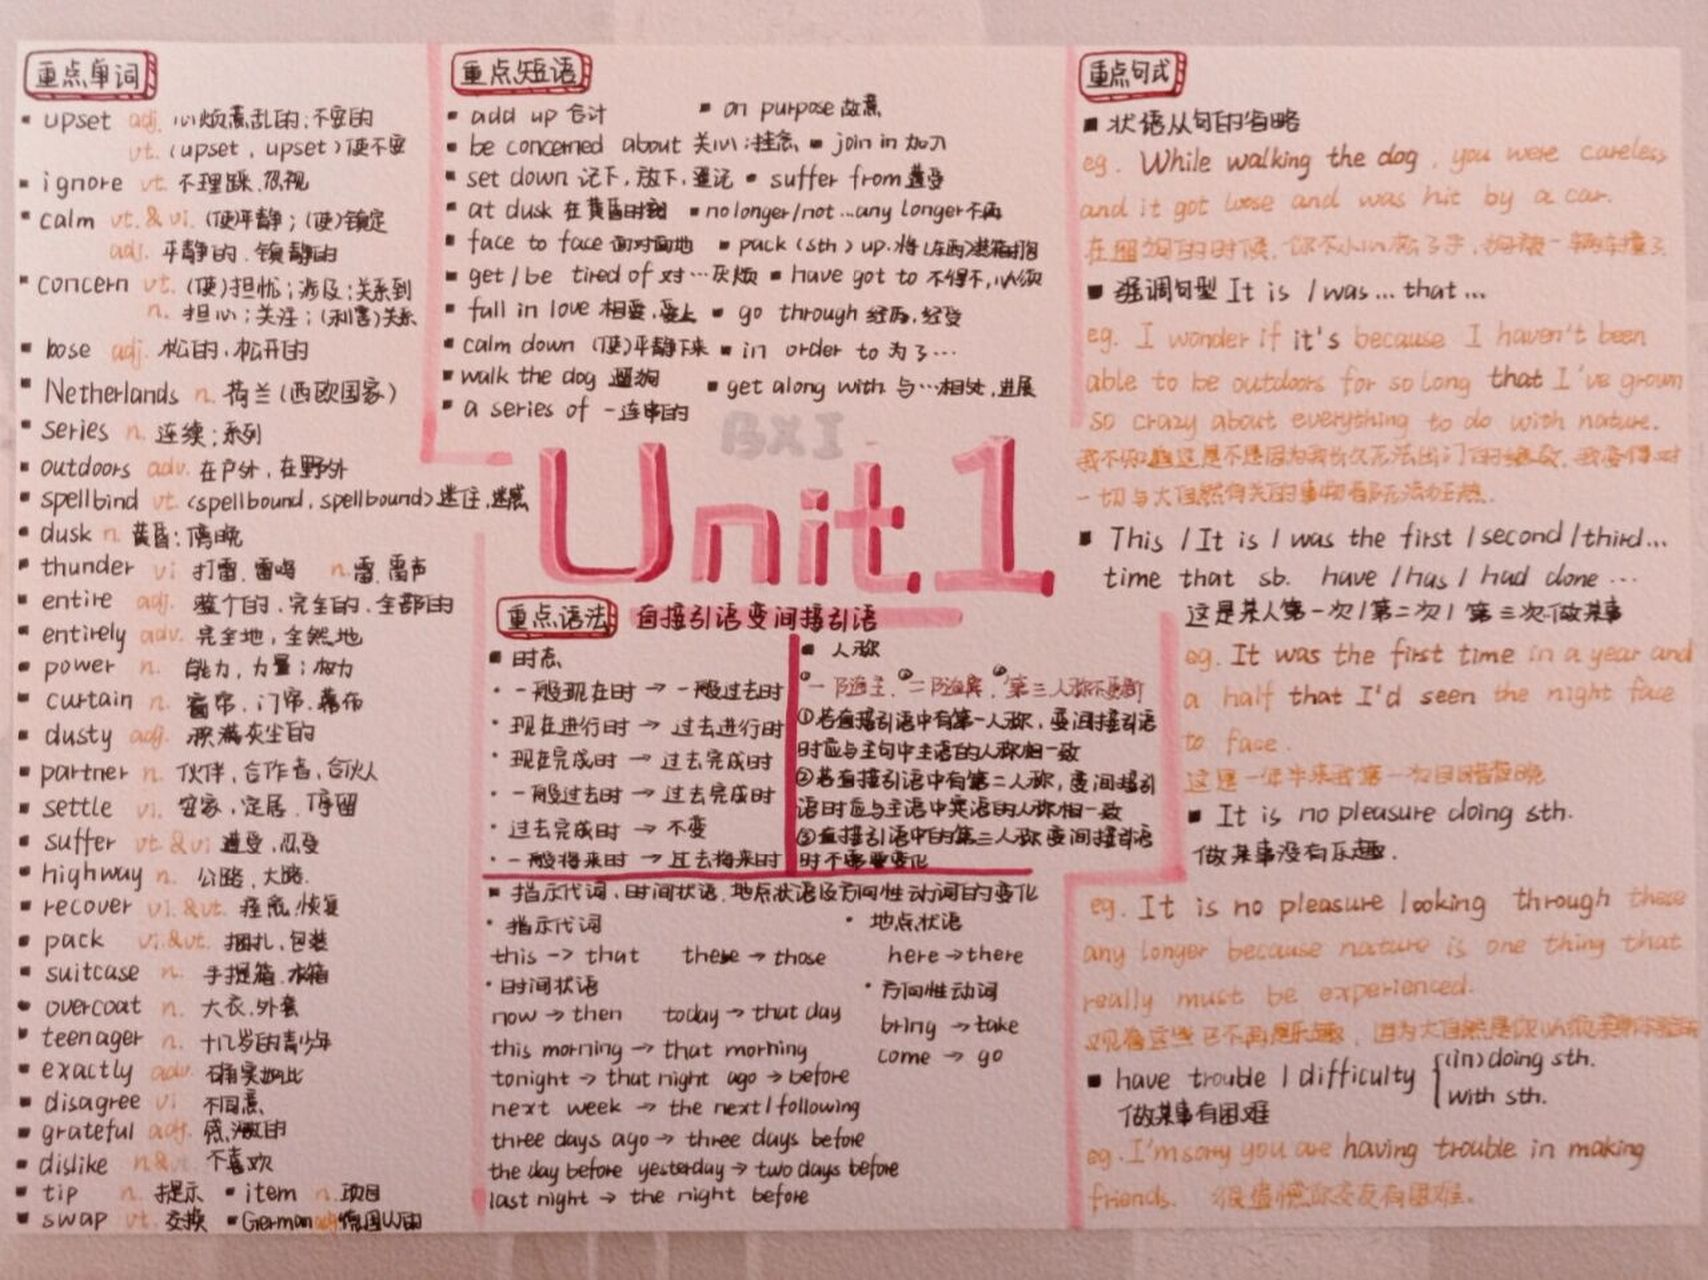 重点单词
▪ upset adj. 心烦意乱的;不安的
vt. (upset, upset) 使不安
▪ ignore vt. 不理睬.忽视
▪ calm vt.&vi. (使)平静;(使)镇定
adj. 平静的.镇静的
▪ concern vt. (使)担忧;涉及;关系到
n. 担心;关注;(利害)关系
▪ loose adj. 松的,松开的
▪ Netherlands n. 荷兰(西欧国家)
▪ series n. 连续;系列
▪ outdoors adv. 在户外,在野外
▪ spellbind vt. (spellbound, spellbound) 迷住,迷惑
▪ dusk n. 黄昏;傍晚
▪ thunder vi 打雷.雷鸣 n.雷.雷声
▪ entire adj. 整个的.完全的.全部的
▪ entirely adv. 完全地,全然地
▪ power n. 能力,力量;权力
▪ curtain n. 窗帘.门帘.幕布
▪ dusty adj. 积满灰尘的
▪ partner n. 伙伴,合作者,合伙人
▪ settle vi. 安家.定居.停留
▪ suffer vt.&vi 遭受.忍受
▪ highway n. 公路,大路.
▪ recover vi.&vt. 痊愈.恢复
▪ pack vi.&vt. 捆扎,包装
▪ suitcase n. 手提箱.衣箱
▪ overcoat n. 大衣.外套
▪ teenager n. 十几岁的青少年
▪ exactly adv. 确实如此
▪ disagree vi 不同意
▪ grateful adj. 感激的
▪ dislike n.&vt. 不喜欢
▪ tip n. 提示 ▪ item n. 项目
▪ swap vt. 交换 ▪ German adj 德国人的
重点短语
▪ add up 合计 ▪ on purpose 故意
▪ be concerned about 关心;挂念 ▪ join in 加入
▪ set down 记下,放下,登记 ▪ suffer from 遭受
▪ at dusk 在黄昏时刻 ▪ no longer/not...any longer 不再
▪ face to face 面对面地 ▪ pack (sth) up. 将(东西)装箱打包
▪ get/be tired of 对…厌烦 ▪ have got to 不得不,必须
▪ fall in love 相爱,爱上 ▪ go through 经历,经受
▪ calm down (使)平静下来 ▪ in order to 为了…
▪ walk the dog 遛狗 ▪ get along with 与…相处,进展
▪ a series of 一连串的
BXI
Unit1
重点语法 直接引语变间接引语
▪ 时态
· 一般现在时 → 一般过去时
· 现在进行时 → 过去进行时
· 现在完成时 → 过去完成时
· 一般过去时 → 过去完成时
· 过去完成时 → 不变
· 一般将来时 → 过去将来时
▪ 人称
一随主,二随宾,第三人称不更新
①若直接引语中有第一人称,变间接引语
时应与主句中主语的人称相一致
②若直接引语中有第二人称,变间接引
语时应与主语中宾语的人称相一致
③直接引语中的第三人称变间接引语
时不需要变化
▪ 指示代词、时间状语.地点状语及方向性动词的变化
· 指示代词
this → that these → those
· 时间状语
now → then today → that day
this morning → that morning
tonight → that night ago → before
next week → the next/following
three days ago → three days before
the day before yesterday → two days before
last night → the night before
· 地点状语
here → there
· 方向性动词
bring → take
come → go
重点句式
▪ 状语从句的省略
eg. While walking the dog, you were careless
and it got loose and was hit by a car.
在遛狗的时候,你不小心松了手,狗被一辆车撞了
▪ 强调句型 It is /was... that...
eg. I wonder if it's because I haven't been
able to be outdoors for so long that I've grown
so crazy about everything to do with nature.
我不知道这是不是因为我长久无法出门的缘故,我变得对
一切与大自然有关的事物都无法狂热.
▪ This / It is / was the first / second / third...
time that sb. have / has / had done ...
这是某人第一次/第二次/第三次做某事
eg. It was the first time in a year and
a half that I'd seen the night face
to face.
这是一年半来我第一次目睹夜晚
▪ It is no pleasure doing sth.
做某事没有乐趣.
eg. It is no pleasure looking through these
any longer because nature is one thing that
really must be experienced.
观看这些已不再是乐趣,因为大自然是你必须亲身体验的
▪ have trouble / difficulty {(in) doing sth.
with sth.
做某事有困难
eg. I'm sorry you are having trouble in making
friends. 很遗憾你交友有困难.